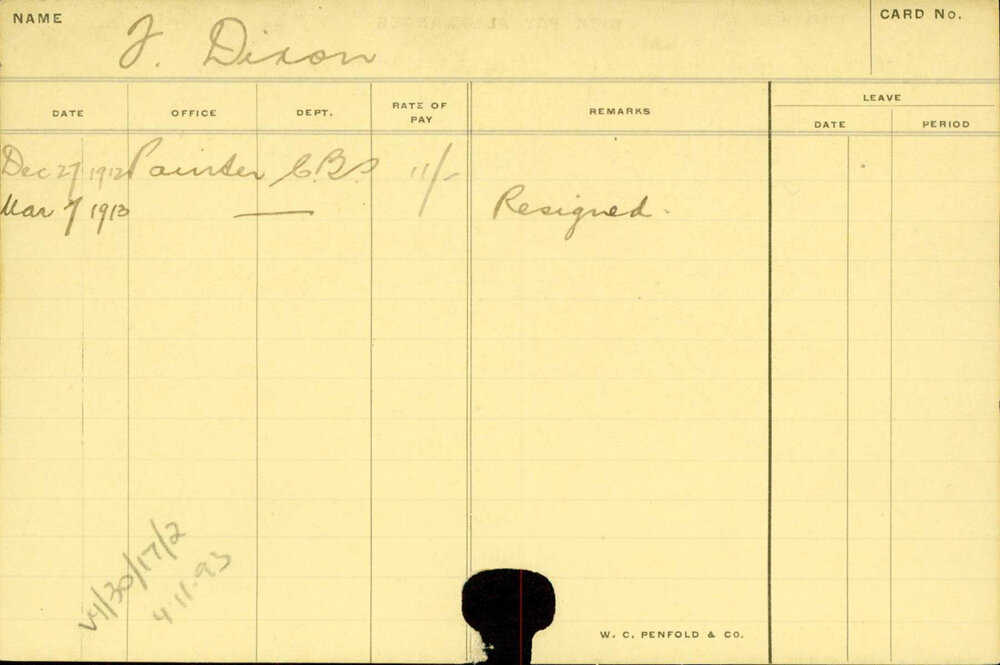 NAME
CARD No.
J. Dixon
DATE OFFICE DEPT. RATE OF PAY REMARKS LEAVE
DATE PERIOD
Dec 27 1912 Painter C.B.S 11/-
Mar 7 1913 — Resigned.
V4/30/17/2
4 11.93
W. C. PENFOLD & CO.